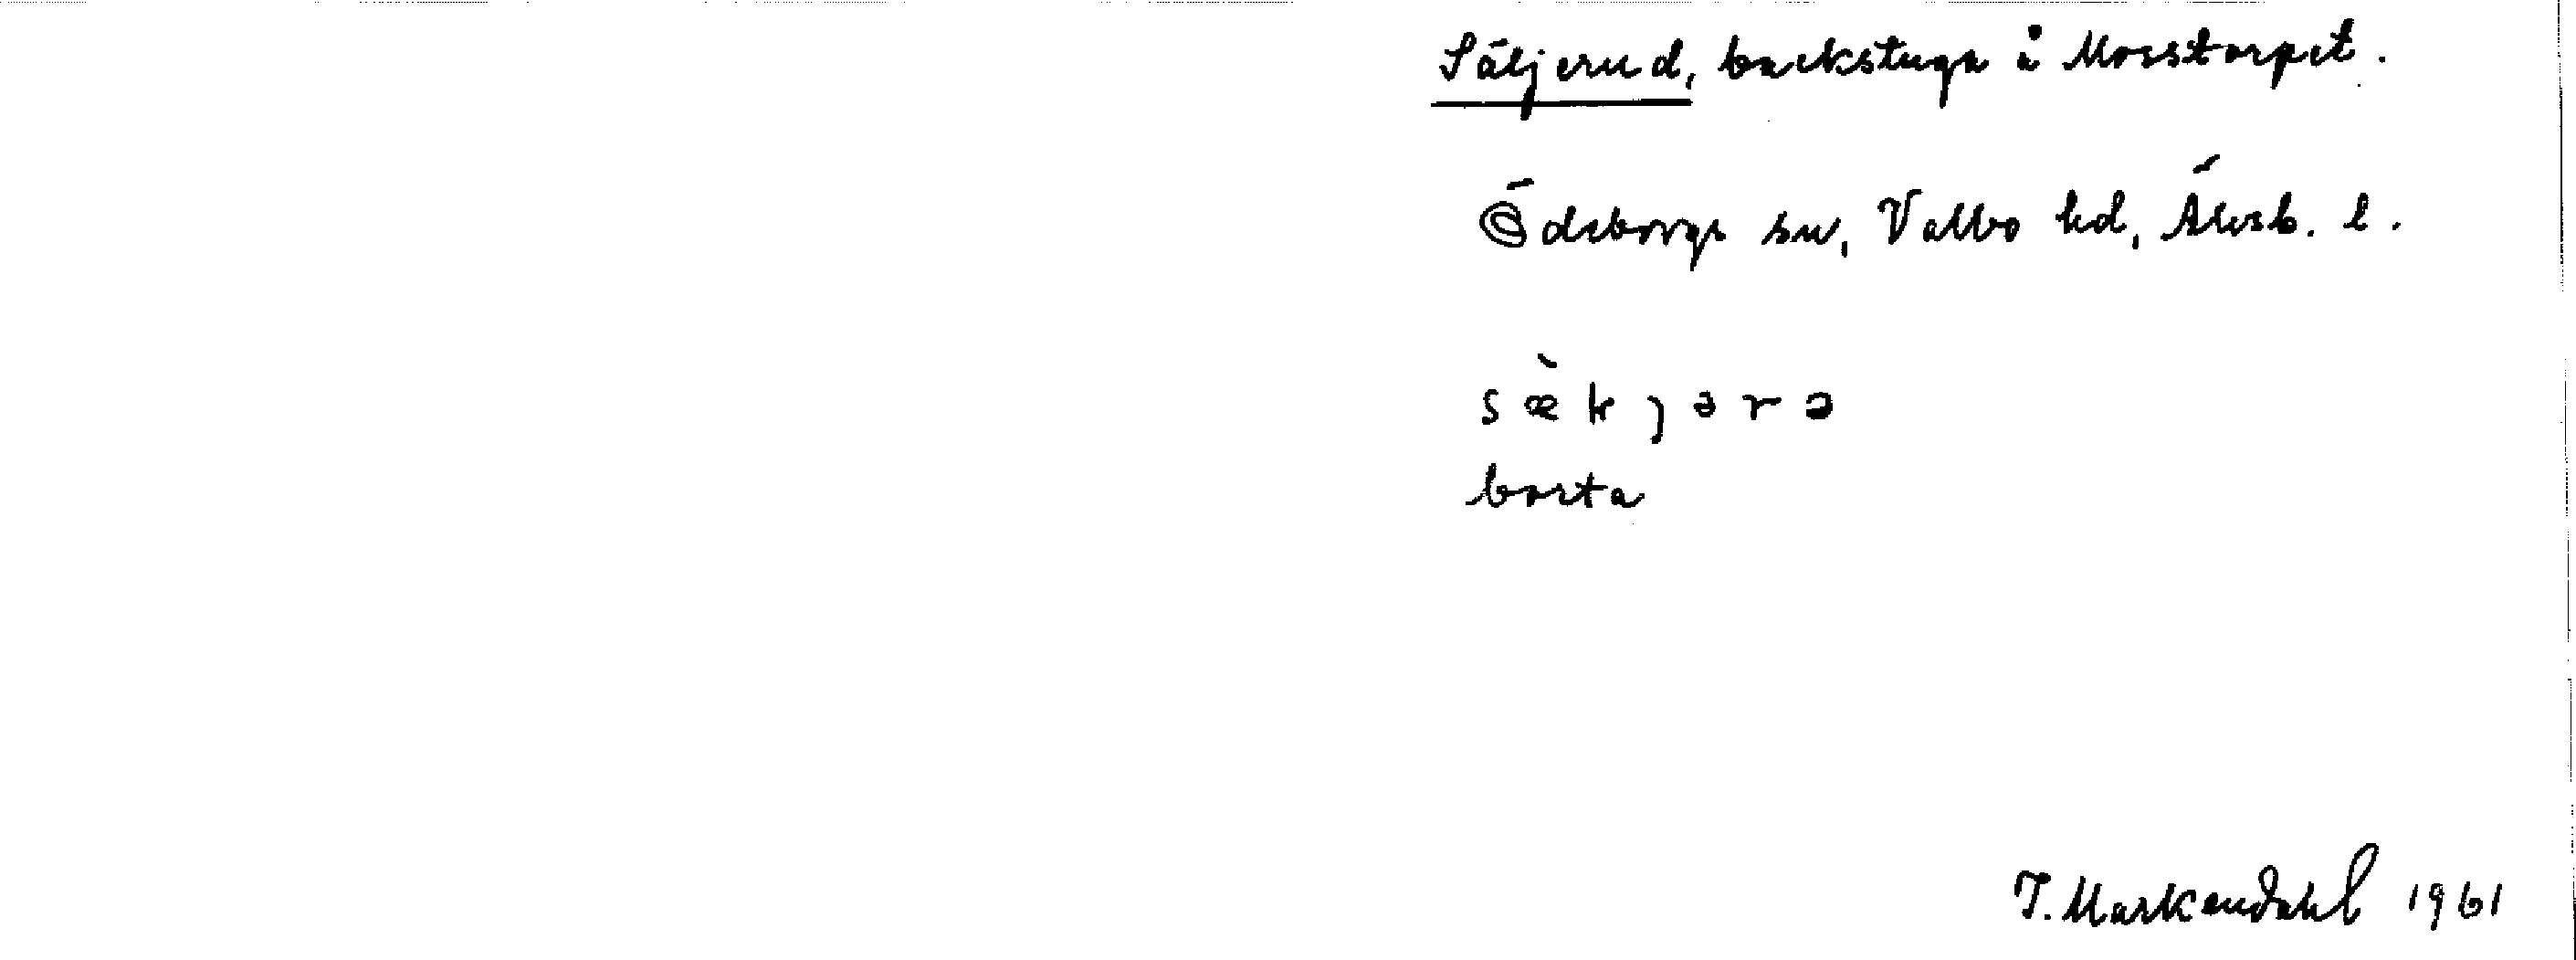 Säljerud, backstuga å Mosstorpet.
Ödeborgs sn, Valbo hd, Älvsb. l.
borta
I. Markendahl 1961